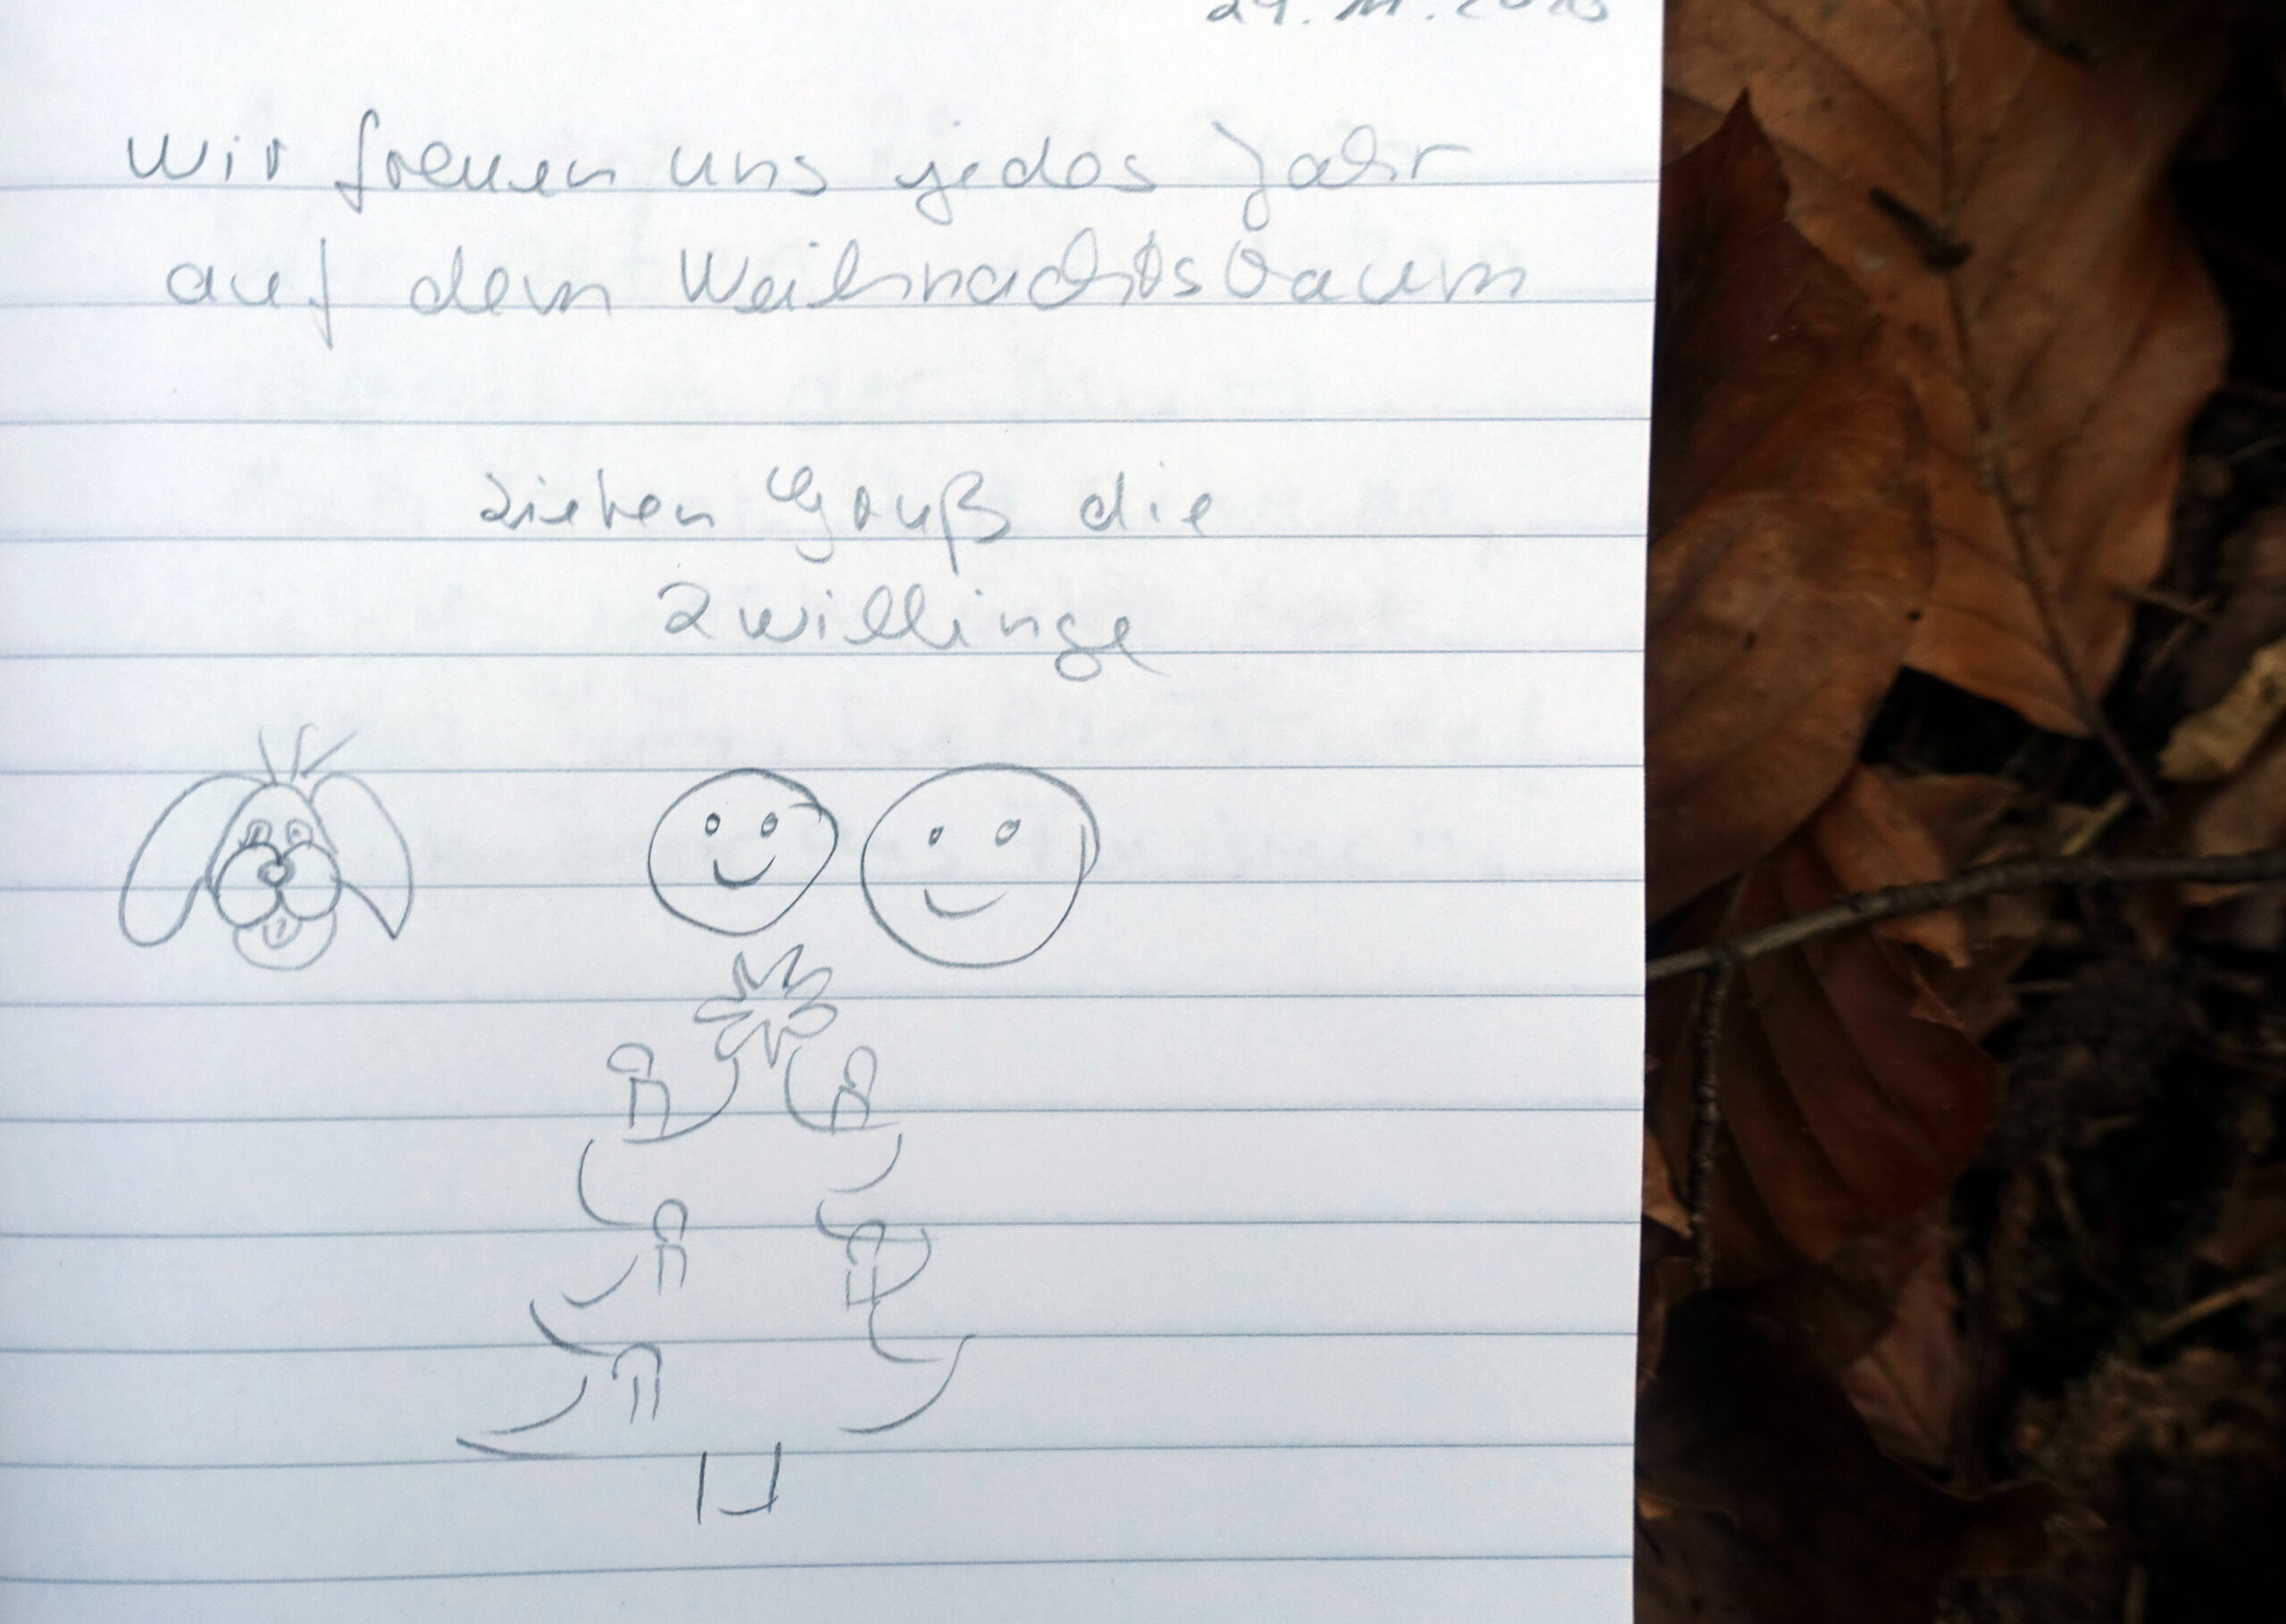 wir freuen uns jedes Jahr
auf dem Weihnachtsbaum
Lieben Gruß die
Zwillinge